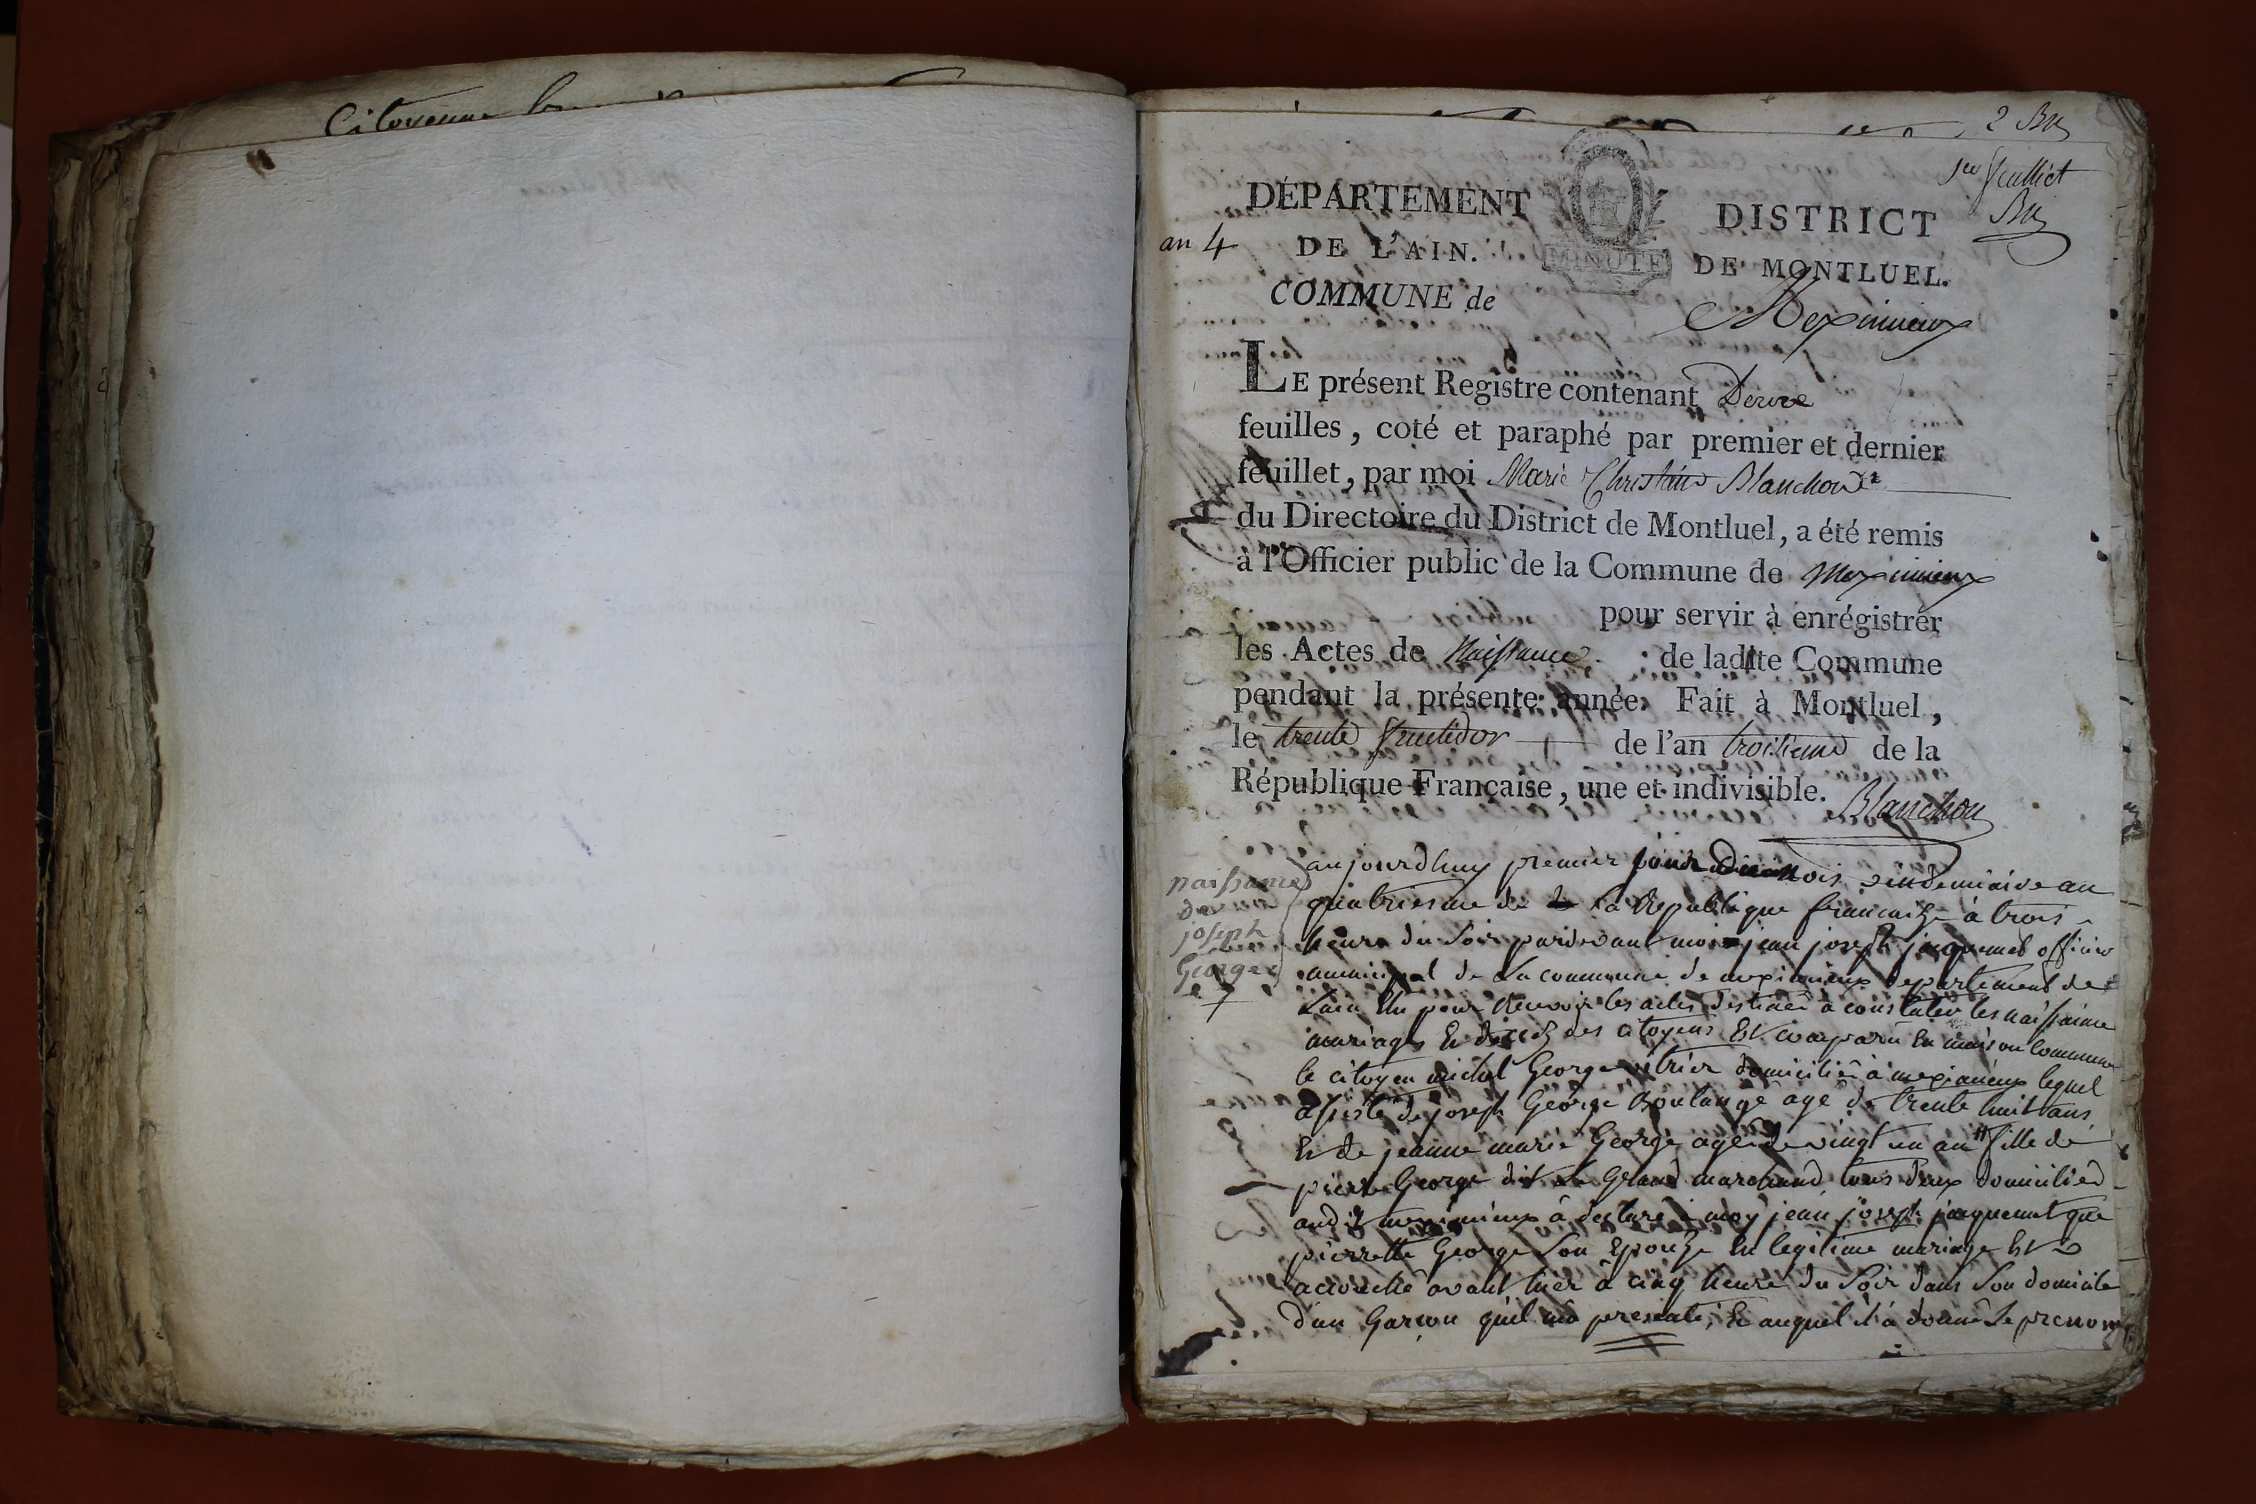 Citoyenne
2 Bn
1er feuillet
Bn
DÉPARTEMENT
DE L'AIN.
an 4
MINUTE
DISTRICT
DE MONTLUEL.
COMMUNE de Meximieux
LE présent Registre contenant Douze
feuilles, coté et paraphé par premier et dernier
feuillet, par moi Marie Christine Blanchon
du Directoire du District de Montluel, a été remis
à l'Officier public de la Commune de Meximieux
pour servir à enrégistrer
les Actes de Naissance de ladite Commune
pendant la présente année. Fait à Montluel,
le trente fructidor de l'an troisieme de la
République Française, une et indivisible.
Blanchon
naissance
de
joseph
George
7
aujourdhuy premier jour du mois vendemiaire an
quatriesme de la Republique francaize à trois
heure du Soir pardevant moi jean joseph jacquemet officier
municipal de La commune de meximieux departement de
Lain Elu pour Recevoir les actes destinés à constater les naissance
mariages Et décèz des citoyens Est comparu En maison Commune
le citoyen michel George domicilié à meximieux lequel
assisté de joseph George Boulangé agé de trente huit ans
Et de jeanne marie George agée de vingt un an fille de
pierre George dit Le Grand marchand tous deux domiciliés
audit meximieux à déclaré à moy jean joseph jacquemet que
pierrette George Son Epouze En legitime mariage Est
accouché avant hier à cinq heure du Soir dans Son domicile
d'un Garçon quil ma presenté, Et auquel il à donné Le prenom